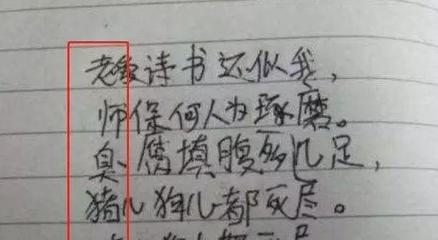 老爱诗书还似我，
师保何人为琢磨。
臭腐填腹几足，
猪儿狗儿都死尽。